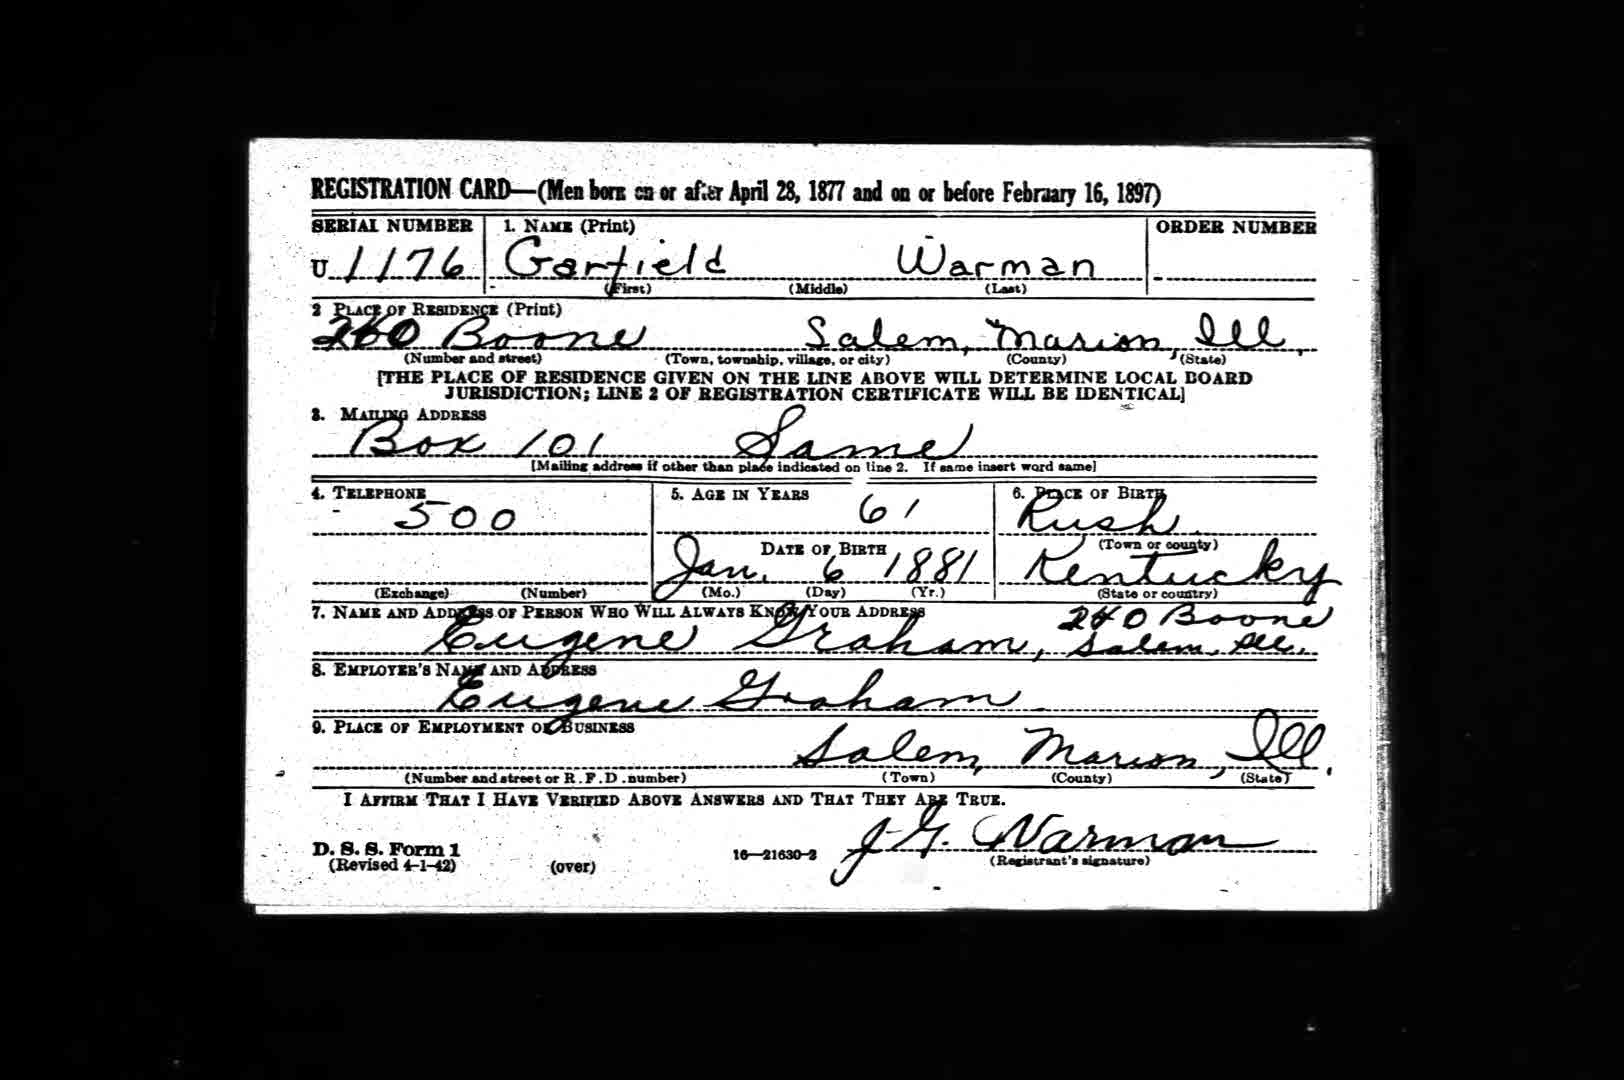 REGISTRATION CARD—(Men born on or after April 28, 1877 and on or before February 16, 1897)
SERIAL NUMBER 1. NAME (Print) ORDER NUMBER
U 1176 Garfield Warman
(First) (Middle) (Last)
2 PLACE OF RESIDENCE (Print)
240 Boone Salem, Marion, Ill.
(Number and street) (Town, township, village, or city) (County) (State)
[THE PLACE OF RESIDENCE GIVEN ON THE LINE ABOVE WILL DETERMINE LOCAL BOARD
JURISDICTION; LINE 2 OF REGISTRATION CERTIFICATE WILL BE IDENTICAL]
3. MAILING ADDRESS
Box 101 Same
[Mailing address if other than place indicated on line 2. If same insert word same]
4. TELEPHONE 5. AGE IN YEARS 6. PLACE OF BIRTH
500 61 Rush
DATE OF BIRTH (Town or county)
Jan. 6 1881 Kentucky
(Exchange) (Number) (Mo.) (Day) (Yr.) (State or country)
7. NAME AND ADDRESS OF PERSON WHO WILL ALWAYS KNOW YOUR ADDRESS 240 Boone
Eugene Graham, Salem, Ill.
8. EMPLOYER'S NAME AND ADDRESS
Eugene Graham
9. PLACE OF EMPLOYMENT OR BUSINESS
Salem, Marion, Ill.
(Number and street or R. F. D. number) (Town) (County) (State)
I AFFIRM THAT I HAVE VERIFIED ABOVE ANSWERS AND THAT THEY ARE TRUE.
J. G. Warman
D. S. S. Form 1
(Revised 4-1-42) (over) 16—21630-2 (Registrant's signature)